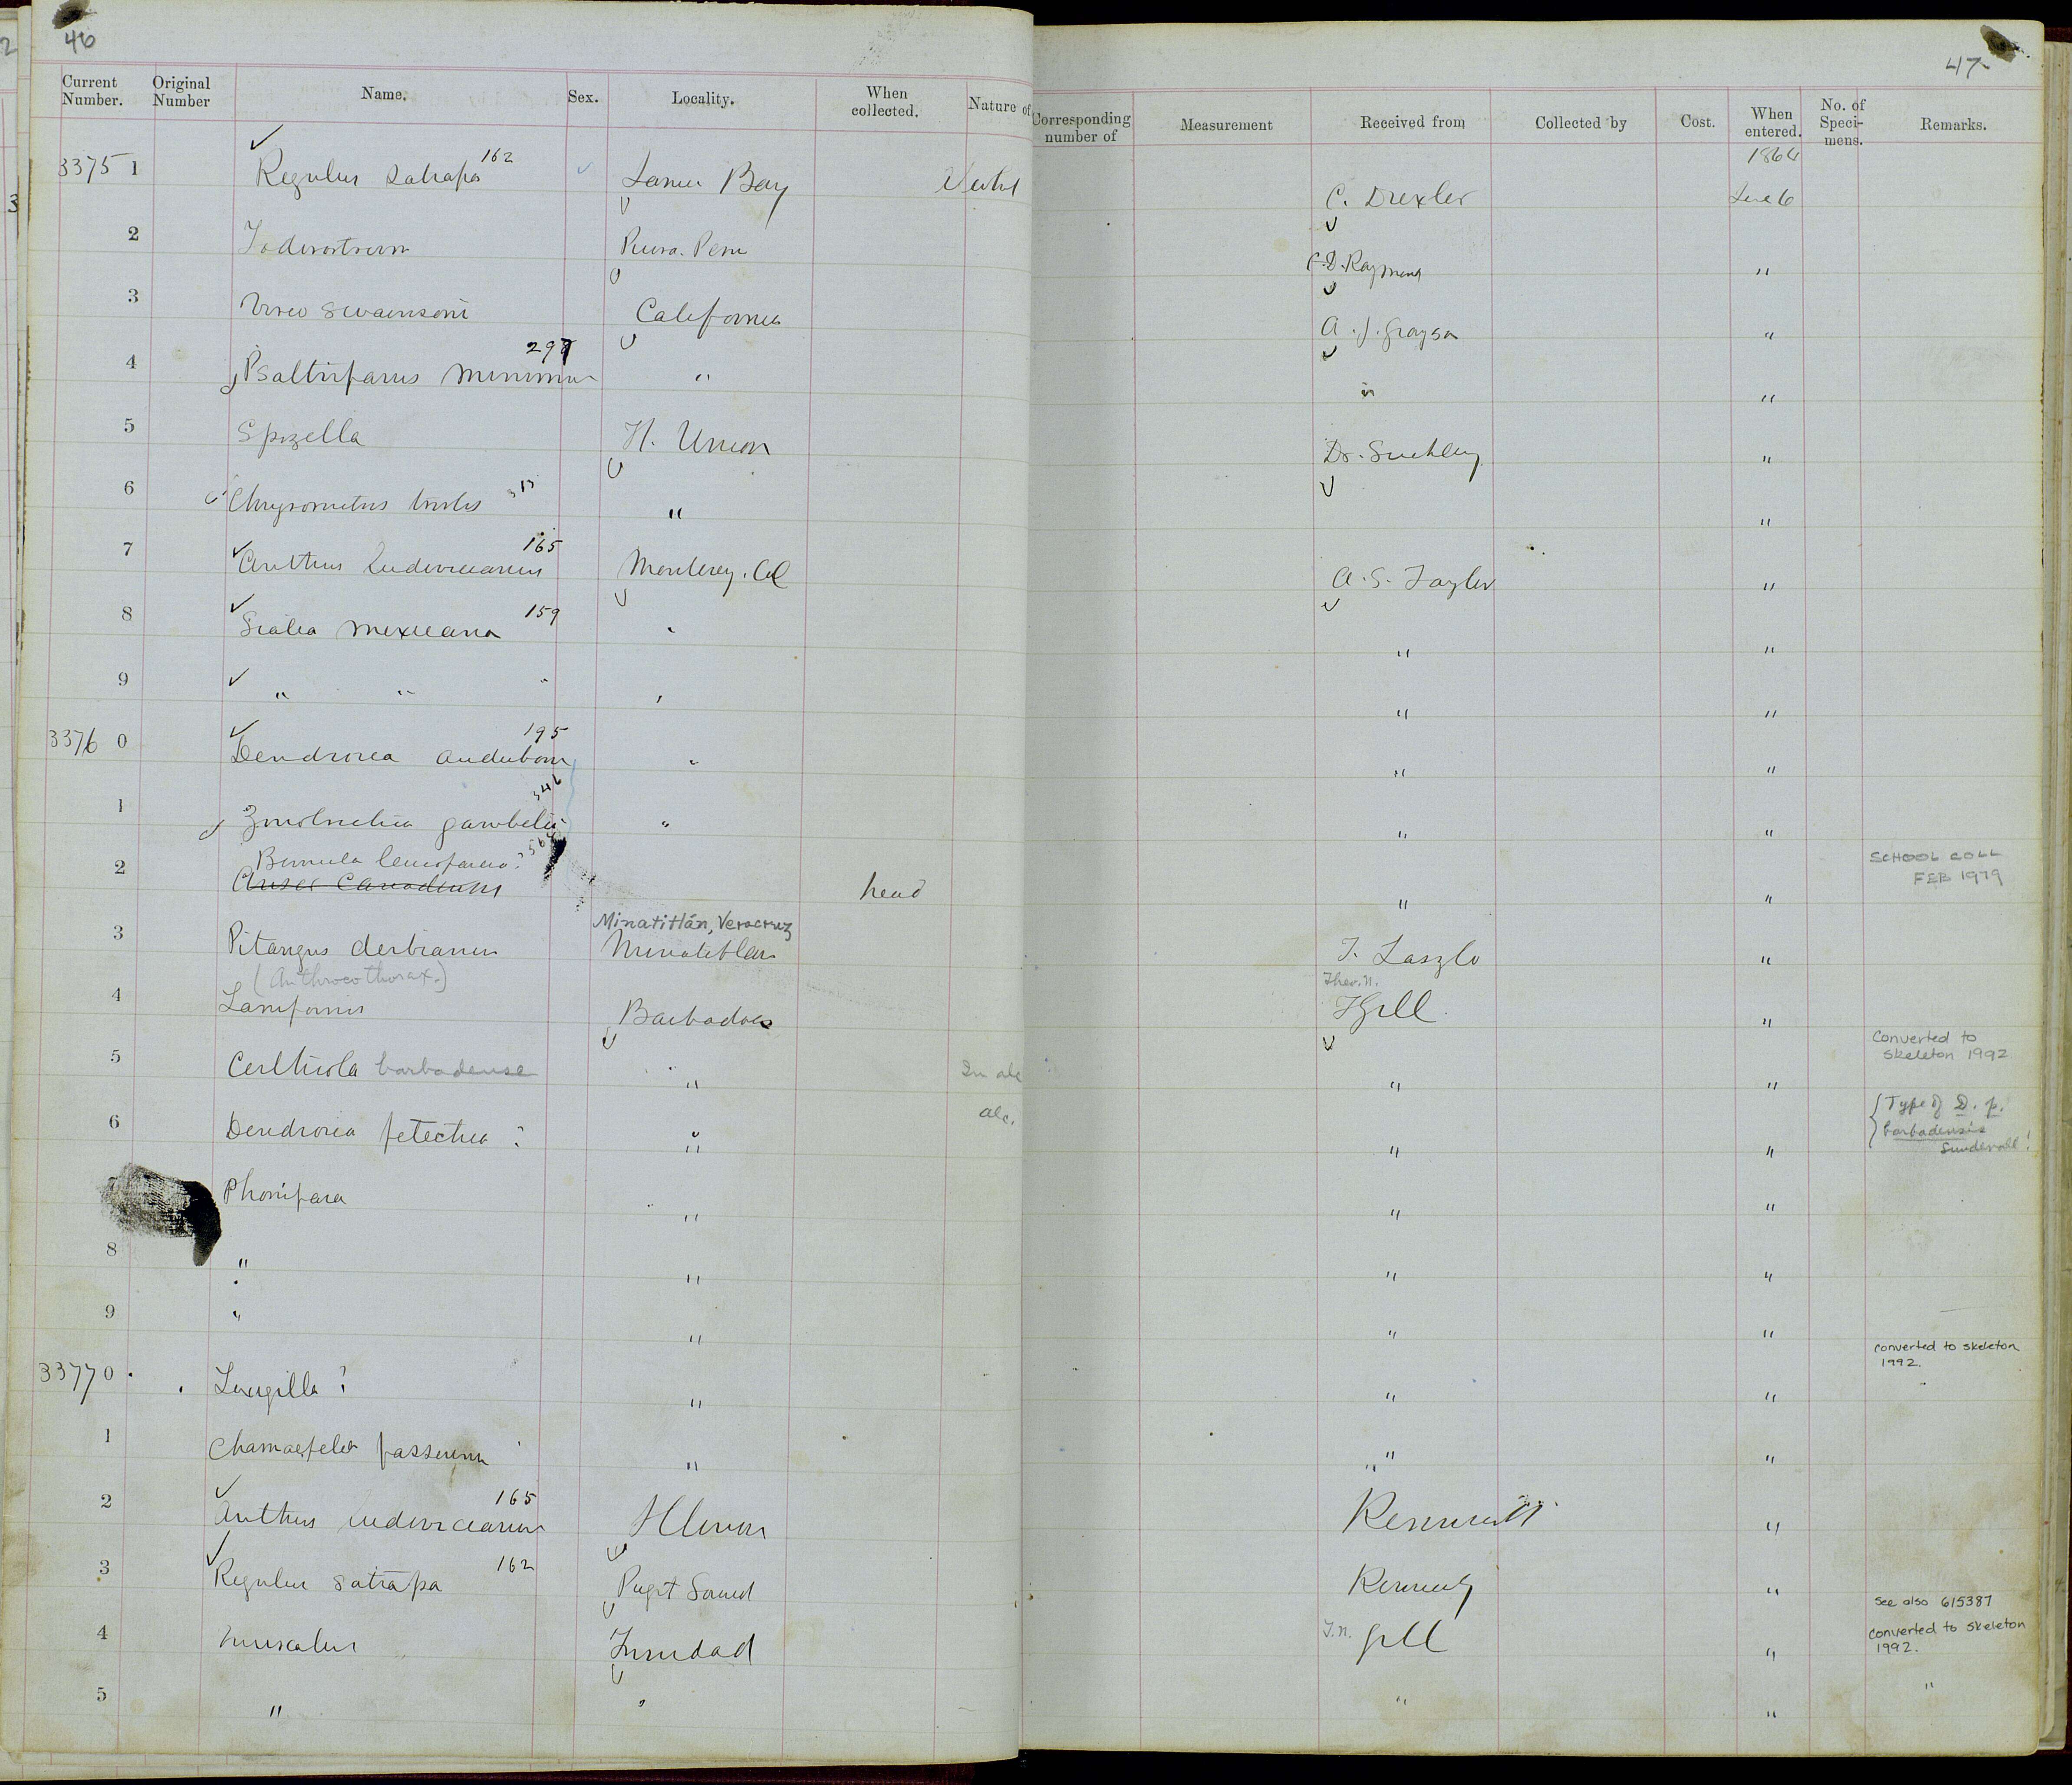 46
Current Number. Original Number Name. Sex. Locality. When collected. Nature of
33751 Regulus satrapa 162 James Bay
2 Todirostrum Piura. Peru
3 Vireo swainsoni California
4 Psaltriparus minimus 298 "
5 Spizella H. Union
6 Chrysomitris tristis 313 "
7 Anthus ludovicianus 165 Monterey. Cal
8 Sialia mexicana 159 "
9 " " " "
33760 Dendroica auduboni 195 "
1 Zonotrichia gambelii 346 "
2 Bernicla leucopareia? Anser Canadensis head
Minatitlán, Veracruz
3 Pitangus derbianus Minatitlan
(Anthrocothorax.)
4 Lampornis Barbadoes
5 Certhiola barbadense " In alc
6 Dendroica petechia? " alc.
7 Phonipara "
8 " "
9 " "
33770 Loxigilla? "
1 Chamaepelia passerina "
2 Anthus ludovicianus 165
3 Regulus satrapa 162 Puget Sound
4 Trinidad
5 " "
47
Corresponding number of Measurement Received from Collected by Cost. When entered. No. of Specimens. Remarks.
1864
C. Drexler
Raymond "
A. J. Grayson "
" "
Dr. Suckley "
"
A. S. Taylor "
" "
" "
" "
" "
SCHOOL COLL
FEB 1979
" "
J. Laszlo "
Theo. N.
Gill "
Converted to
skeleton 1992
" "
{Type of D. p.
barbadensis
Sundevall!
" "
" "
" "
" "
converted to skeleton
1992.
" " "
" "
Kennicott "
Kennerly "
See also 615387
T.N. Gill " converted to skeleton
1992.
" " "